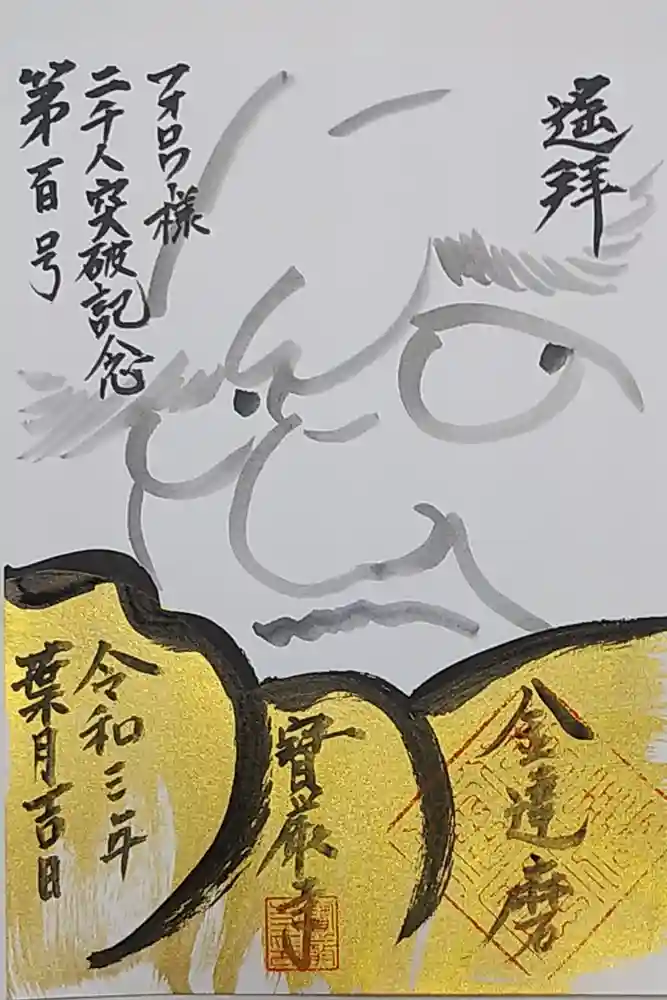 遙拝
フォロワー様
二千人突破記念
第百号
金達磨
寳厳寺
令和三年
葉月吉日